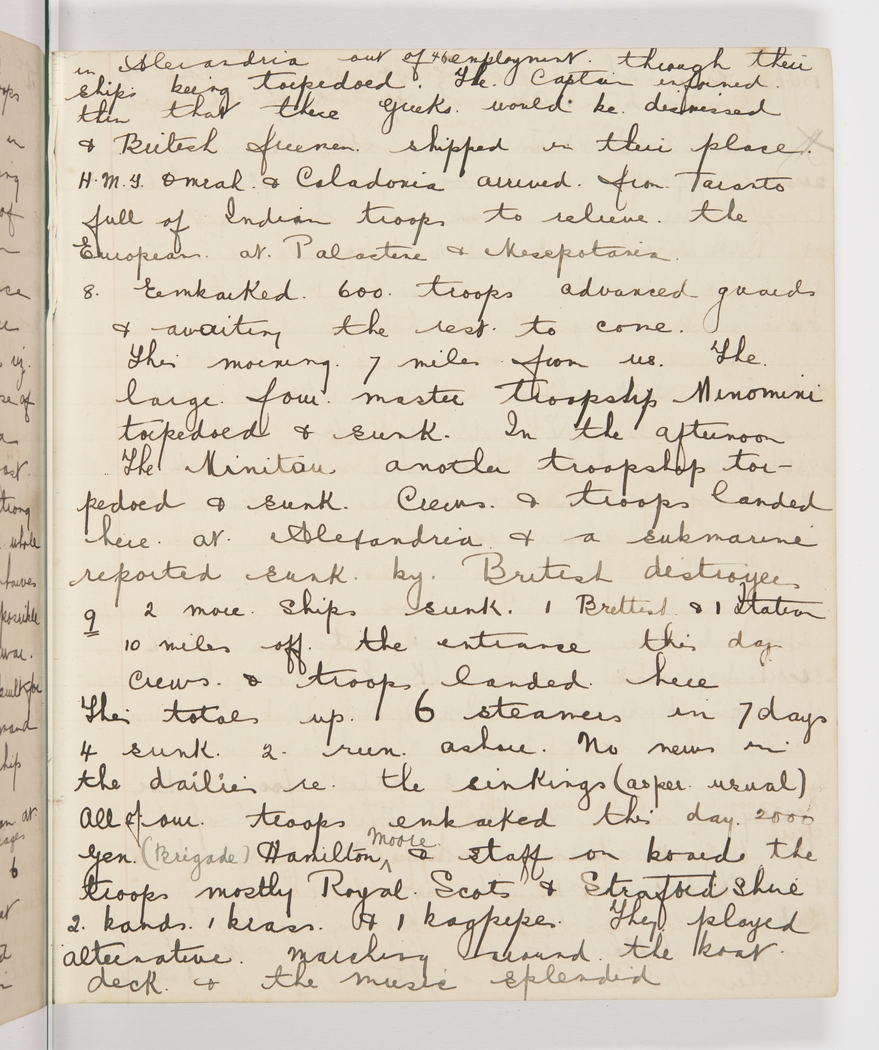 in Alexandria out of employment. through their
ships being torpedoed. The Captain informed.
then that these Greeks. would be. dismissed
& British firemen. shipped in their place.
H.M.T. Omrah. & Caladonia arrived. from Taranto
full of Indian troops to relieve. the
Europeans. at. Palastine & Mesepotania.
8. Eembarked. 600. troops advanced guards
& awaiting the rest. to come.
This morning. 7 miles from us. The.
large. four. master troopship Minomini
torpedoed & sunk. In the afternoon
The Minitau another troopshop tor-
pedoed & sunk. Crews. & troops landed
here. at. Alexandria & a submarine
reported sunk. by. British destroyer
9 2 more. ships sunk. 1 Brettish & 1 Itatian
10 miles off. the entrance this day
Crews. & troops landed. here
This totals up. 6 steamers in 7 days
4 sunk. 2. run. ashore. No news in
the dailies re. the sinkings (as per. usual)
All of our. troops embarked this day. 2000
Gen. (Brigade) Hamilton Moore. & staff on board the
troops mostly Royal. Scots & Strafford Shire
2. bands. 1 brass. & 1 bagpipes. They played
alternative. marching around. the boat.
deck. & the music splendid